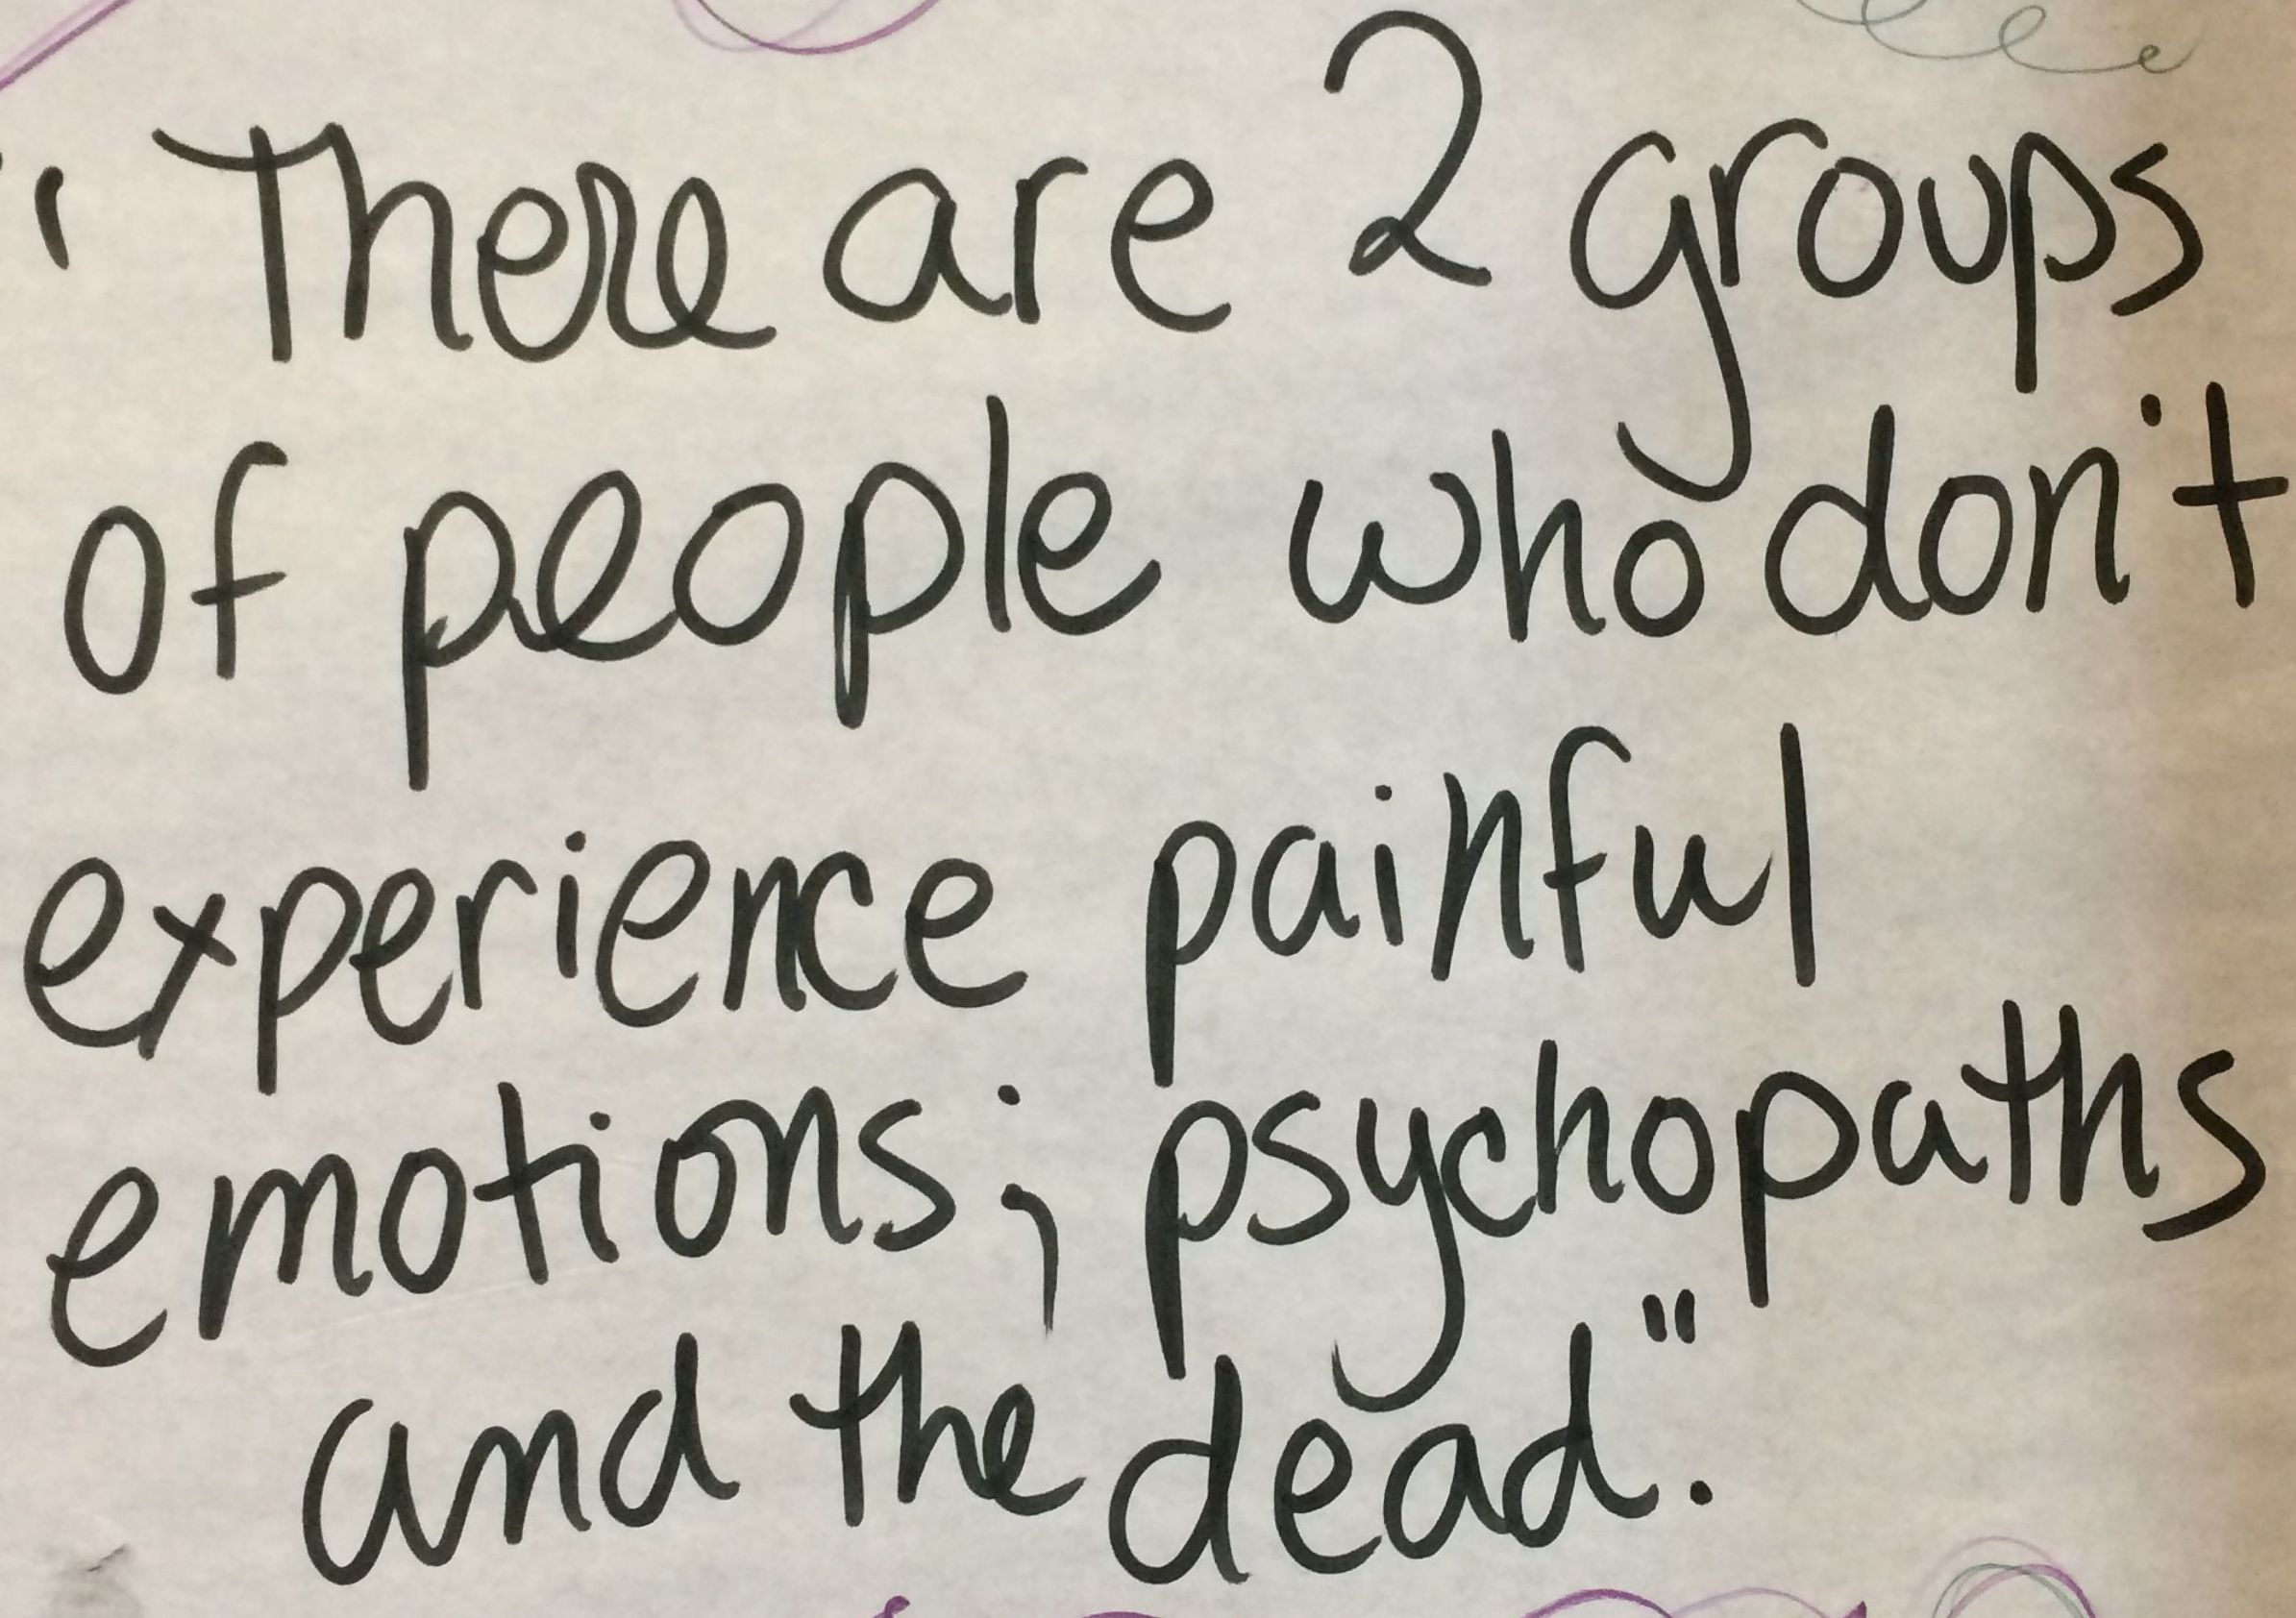 "There are 2 groups
of people who don't
experience painful
emotions; psychopaths
and the dead."